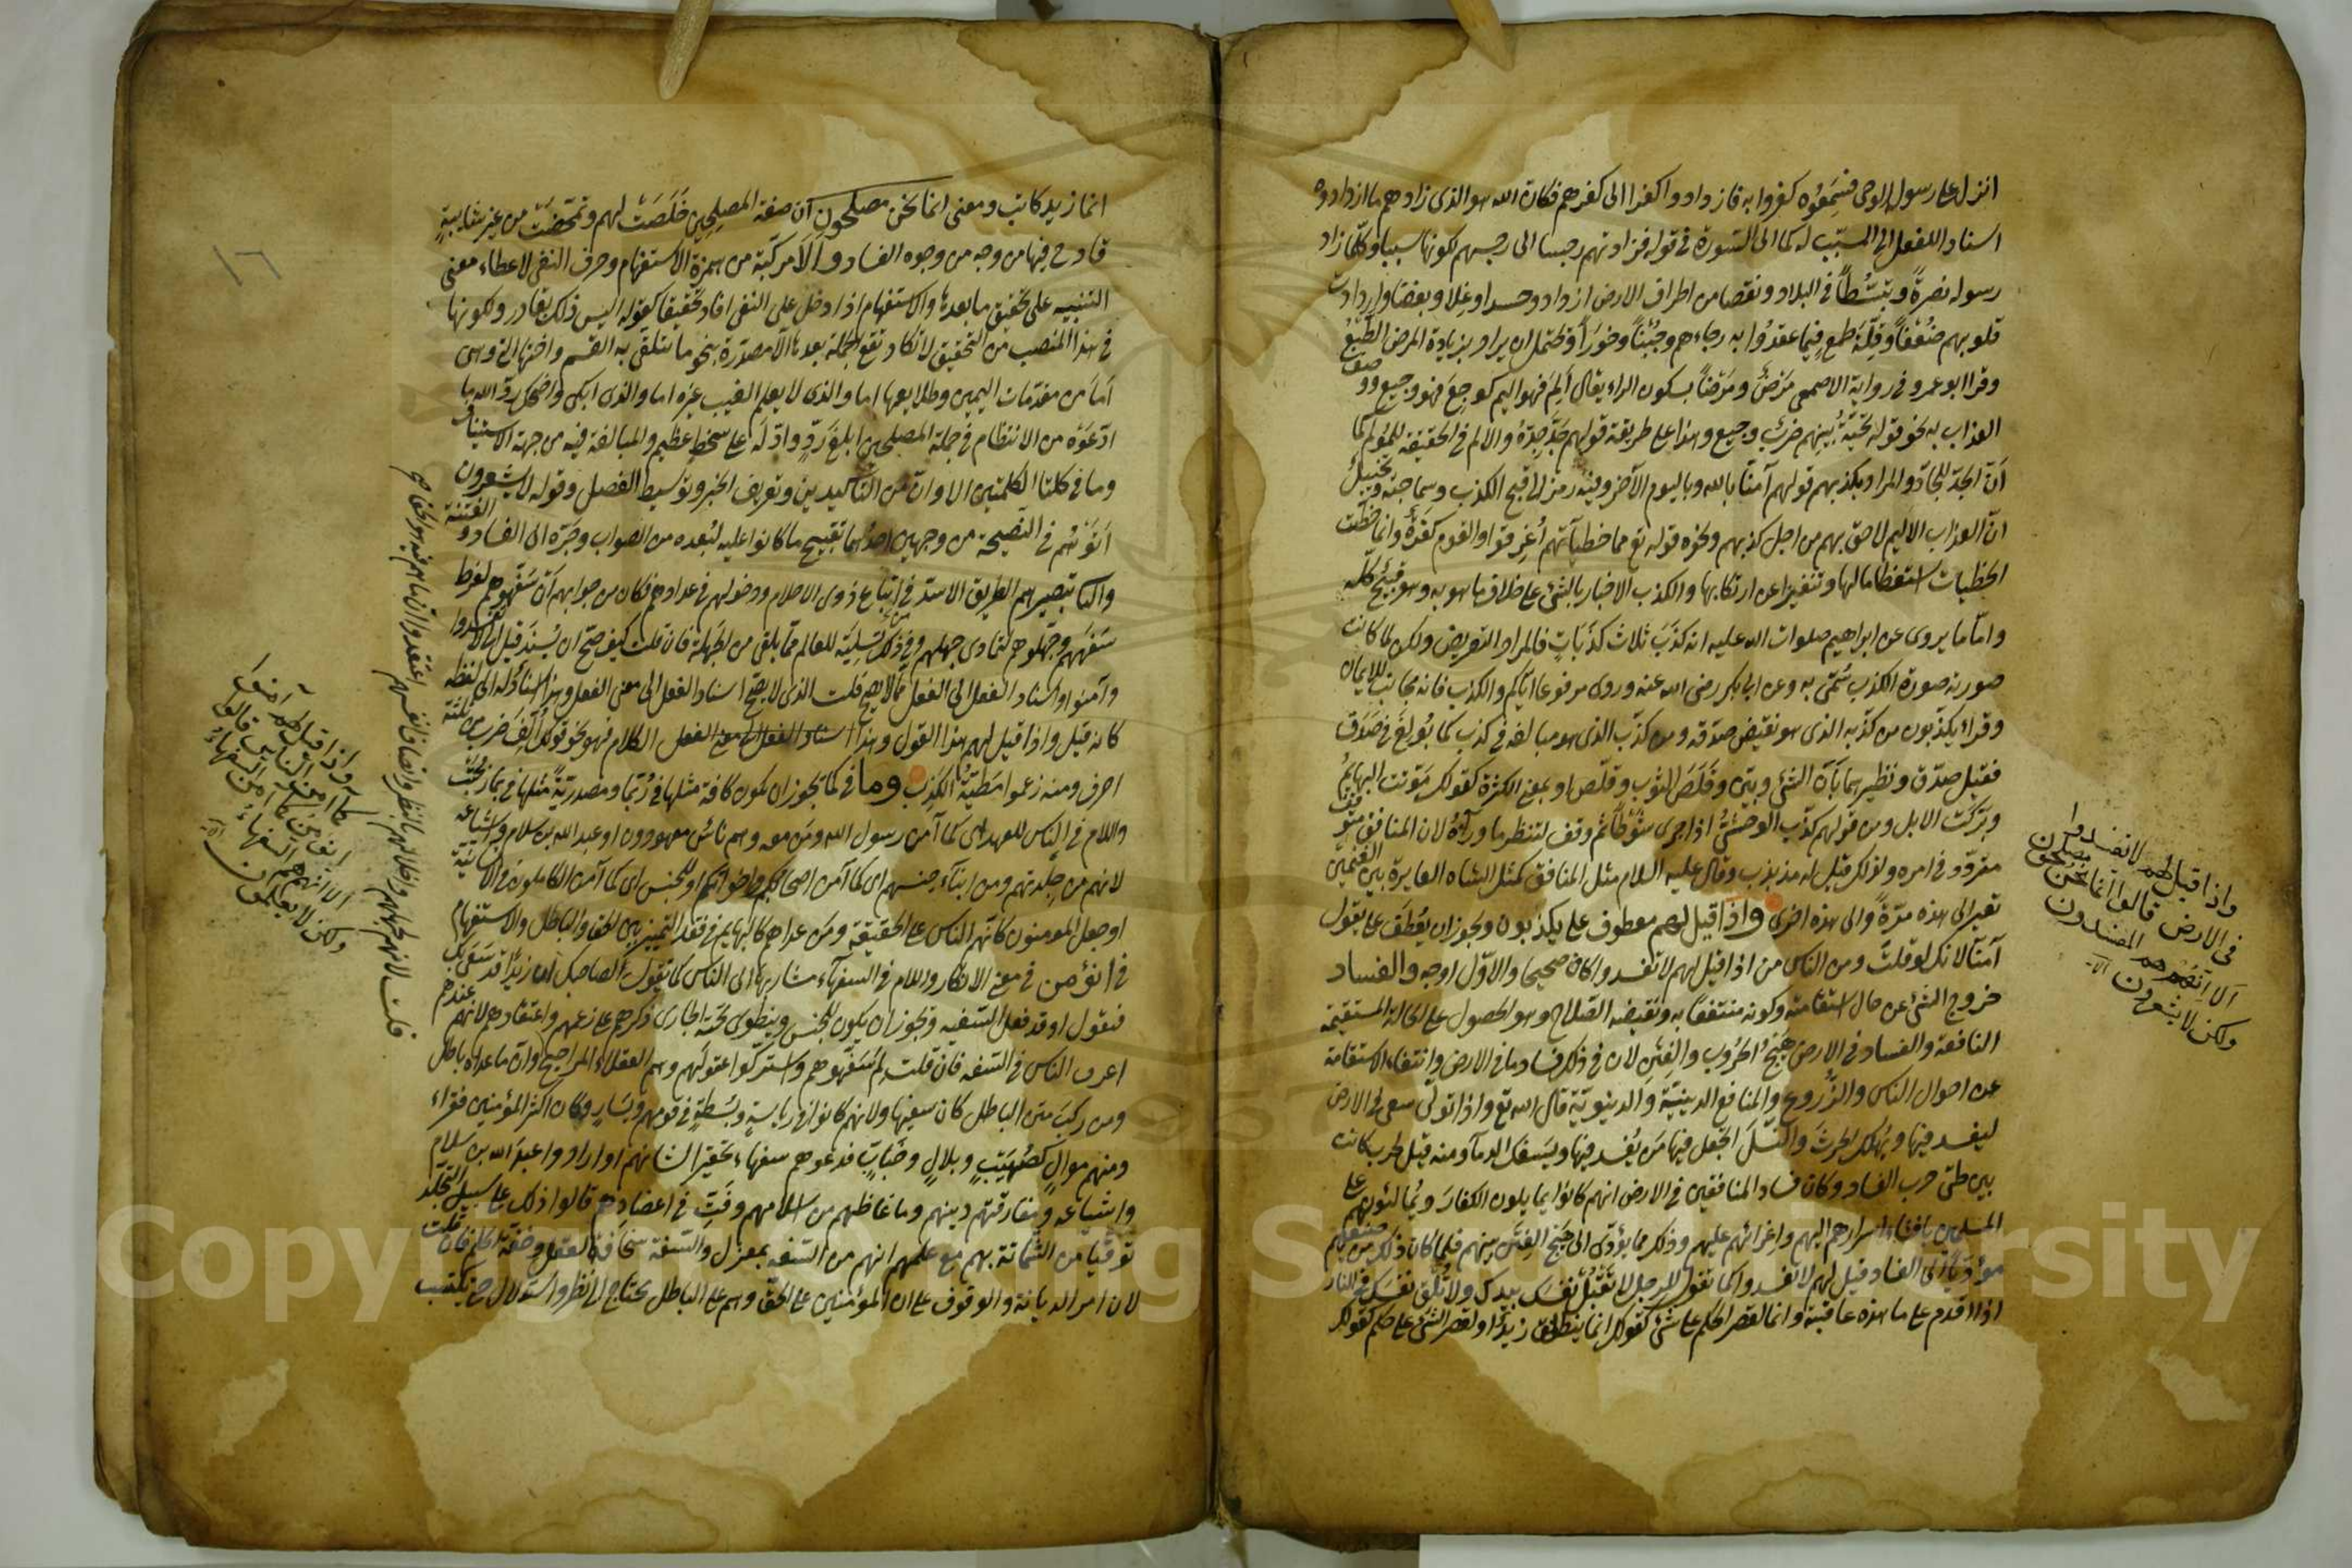 انزل على رسوله الوحى فسمعوه كفروا به فازدادوا كفرا الى كفرهم فكان الله هو الذى زادهم ما ازدادوه
اسنادا للفعل الى المسبّب له كما الى السورة فى قوله فزادتهم رجسا الى رجسهم لكونها سببا وكلّما زاد
رسوله نصرةً وتبسّطًا فى البلاد ونقصا من اطراف الارض ازدادوا حسدا وغلا وبغضا وازدادت
قلوبهم ضُعْفًا وقلّة طمع فيما عقدوا به رجاءهم وجُبْنًا وخورًا ويحتمل ان يراد بزيادة المرض الطبع
وقرا ابو عمرو فى رواية الاصمعى مَرْضٌ ومَرْضًا بسكون الراء يقال اَلِمَ فهو اليم كوجِعَ فهو وجيع ووصف
العذاب به نحو قوله تحيّةُ بينهم ضربٌ وجيع وهذا على طريقة قولهم جدّ جِدّهُ والالم فى الحقيقة للمؤلم كما
انّ الجدّ للجادّ والمراد بكذبهم قولهم آمنّا بالله وباليوم الآخر وفيه رمز الى قبح الكذب وسماجته وتخييل
انّ العذاب الاليم لاحق بهم من اجل كذبهم ونحوه قوله تع مما خطيآتهم اُغرقوا والقوم كفرة وانما خصّت
الخطيات استعظاما لها وتنفيرا عن ارتكابها والكذب الاخبار بالشئ على خلاف ما هو به وهو قبيح كلّه
وامّا ما يروى عن ابراهيم صلوات الله عليه انه كَذَبَ ثلاث كذَبَات فالمراد التعريض ولكن لما كانت
صورته صورة الكذب سُمّى به وعن ابى بكر رضى الله عنه وروى مرفوعا ايّاكم والكذب فانه مجانب للايمان
وقراء يكذّبون من كذّبه الذى هو نقيض صدّقه ومن كذّب الذى هو مبالغة فى كذب كما بُولِغَ فى صَدَقَ
فقيل صدّق ونظيرهما بَانَ الشئ وبيّن وقَلَصَ الثوب وقلّص او بمعنى الكثرة كقولك مَوّتت البهايمُ
وبرّكت الابل ومن قولهم كذّب الوحشىّ اذا جرى شوطًا ثم وقف لتنظر ما وراءهُ لان المنافق متوقّف
متردّد فى امره ولذلك قيل له مذبذب وقال عليه السلام مثل المنافق كمثل الشاه العايرة بين الغنمين
تعير الى هذه مرّةً والى هذه اخرى واذا قيل لهم معطوف على يكذبون ويجوز ان يُعْطَفَ على يقول
آمنّا لانك لو قلتَ ومن الناس من اذا قيل لهم لا تفسدوا كان صحيحا والاوّل اوجه والفساد
خروج الشئ عن حال استقامته وكونه منتفعًا به ونقيضه الصّلاح وهو الحصول على الحالة المستقيمة
النافعة والفساد فى الارض هَيْجُ الحُرُوب والفتن لان فى ذلك فساد ما فى الارض وانتفاء الاستقامة
عن احوال الناس والزُّروع والمنافع الدينيّة والدينويّة قال الله تع واذا تولّى سعى فى الارض
ليفسد فيها ويُهْلك الحرث والنّسلَ اتجعل فيها من يُفسد فيها ويسفك الدمآ ومنه قيل لحرب كانت
بين طئ حرب الفساد وكان فساد المنافقين فى الارض انهم كانوا يمايلون الكفارَ ويُمالئونهم على
المسلمين بافشاء اسرارهم اليهم واغرائهم عليهم وذلك مما يؤدّى الى هَيْج الفِتَن بينهم فلما كان ذلك من صنيعهم
مؤدّيًا الى الفساد قيل لهم لا تفسدوا كما تقول للرجل لا تقتل نفسك بيدك ولا تُلْق نفسك فى النار
اذا اقدم على ما هذه عاقبته وانما لقصر الحكم على شئ كقولك انما ينطلق زيدٌ او لقصر الشئ على حكم كقولك
واذا قيل لهم لا تفسدوا
فى الارض قالوا انما نحن مصلحون
الا انهم هم المفسدون
ولكن لا يشعرون الآية
انما زيد كاتب ومعنى انما نحن مصلحون ان صفة المصلحين خَلَصَتْ لهم وتمحّضت من غير شايبةٍ
قادح فيها من وجه من وجوه الفساد والَا مركّبة من همزة الاستفهام وحرف النفى لاعطاء معنى
التنبيه على تحقيق ما بعدها والاستفهام اذا دخل على النفى افاد تحقيقا كقوله اليس ذلك بقادر ولكونها
فى هذا المنصب من التحقيق لا تكاد تقع الجملة بعدها الّا مصدّرة بنحو ما يتلقى به القسم واختها التى هى
اَمَا من مقدّمات اليمين وطلايعها اما والذى لا يعلم الغيب غيره اما والذى ابكى واضحك ردّ الله ما
ادّعَوْه من الانتظام فى جملة المصلحين ابلغ ردٍّ وادلّه على سخط عظيم والمبالغة فيه من جهة الاستيناف
وما فى كلتا الكلمتين الا وانّ من التأكيدين وتعريف الخبر وتوسيط الفصل وقوله لا يشعرون
اَتَوْهُم فى النصيحة من وجهين احدهما تقبيح ما كانوا عليه لبُعده من الصواب وجرّه الى الفساد والفتنة
والثا تبصيرهم الطريق الاسدّ فى اتّباع ذوى الاحلام ودخولهم فى عدادهم فكان من جوابهم اَنْ سَفّهوهم لفرط
سَفَههم وجَهّلوهم لتمادى جهلهم وفى ذلك تسليةٌ للعالم ممّا يلقى من الجَهَلة فان قلت كيف صحّ ان يُسْنَد قيل الى لا تفسدوا
وآمنوا واسناد الفعل الى الفعل ممّا لا يصح قلت الذى لا يصحّ اسناد الفعل الى معنى الفعل وهذا اسنادٌ له الى لفظه
كانه قيل واذا قيل لهم هذا القول وهذا الكلام فهو نحو قولك اَلِفٌ ضرب من ثلثة
احرف ومنه زعموا مَطيّةُ الكذب وما فى كما يجوز ان تكون كافة مثلها فى رُبّما ومصدريّةً مثلها فى بما رحُبت
واللام فى الناس للعهد اى كما آمن رسول الله ومَن معه وهم ناسٌ معهودون او عبد الله بن سلام واشياعه
لانهم من جِلدتهم ومن ابنآء جنسهم اى كما آمن اصحابكم واخوانكم او للجنس اى كما آمن الكاملون فى الانسانية
او جعل المومنون كانّهم الناس على الحقيقة ومَن عداهم كالبهايم فى فقد التمييز بين الحق والباطل والاستفهام
فى انؤمن فى معنى الانكار واللام فى السفهآء مشار بها الى الناس كما تقول لصاحبك ان زيدًا قد سَعَى بك
فيقول اوقد فعل السّفيه ويجوز ان يكون للجنس وينطوى تحته الجارى ذكرهم على زعمهم واعتقادهم لانهم عندهم
اعرف الناس فى السّفه فان قلت لِمَ سَفّهوهم واسترَكّوا عقولَهم وهم العقلاء المراجيح
ومن ركبَ متن الباطل كان سفيها ولانهم كانوا فى رياسةٍ وبَسْطةٍ فى قومهم ويَسَارٍ وكان اكثر المؤمنين فقراء
ومنهم موالٍ كصُهَيْبٍ وبلالٍ وخَبّابٍ فدعوهم سفهاء تحقيرا لشانهم او ارادوا عبدَ الله بن سلام
واشياعه ومفارقتهم دينهم وما غاظهم من اسلامهم وفَتّ فى اعضادهم قالوا ذلك على سبيل التجلّد
توقّيًا من الشماتة بهم مع علمهم انهم من السّفه بمعزل والسّفه سخافة العقل وخفّة الحلم فان قلت
لان امر الديانة والوقوف على ان المؤمنين على الحقّ وهم على الباطل يحتاج الى نظر واستدلال حتى يكتسب
قلت لانهم لجهلهم واخلالهم بالنظر وانصاف انفسهم اعتقدوا ان ما هم فيه هو الحق
واذا قيل لهم آمنوا
كما آمن الناس قالوا
انؤمن كما آمن السفهاءُ
الا انهم هم السفهاءُ
ولكن لا يعلمون الآية
١٦
Copyright © King Saud University
1957